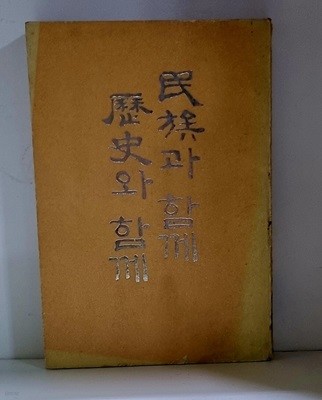 民族과 함께
歷史와 함께